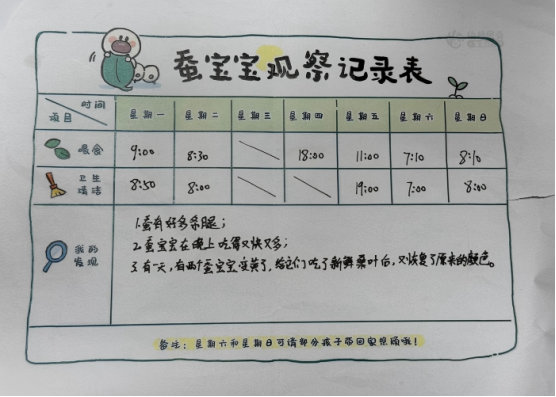 蚕宝宝观察记录表
时间
项目
星期一 星期二 星期三 星期四 星期五 星期六 星期日
喂食 9:00 8:30 18:00 11:00 7:10 8:10
卫生
清洁 8:50 8:00 19:00 7:00 8:00
我的
发现
1.蚕有好多条腿；
2.蚕宝宝在晚上吃得又快又多；
3.有一天，有两个蚕宝宝变黄了，给它们吃了新鲜桑叶后，又恢复了原来的颜色。
备注：星期六和星期日可请部分孩子带回家照顾哦！